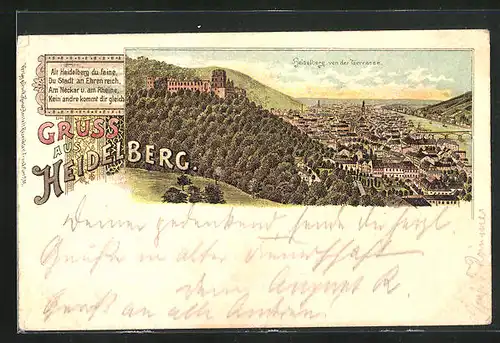 Alt Heidelberg du feine,
Du Stadt an Ehren reich,
Am Neckar u. am Rheine,
Kein andre kommt dir gleich.
Heidelberg von der Terrasse.
GRUSS
AUS
HEIDELBERG.
Deiner gedenkend sende dir herzl.
Grüße in alter Freundschaft
dein August R.
Gruß an alle Andern.